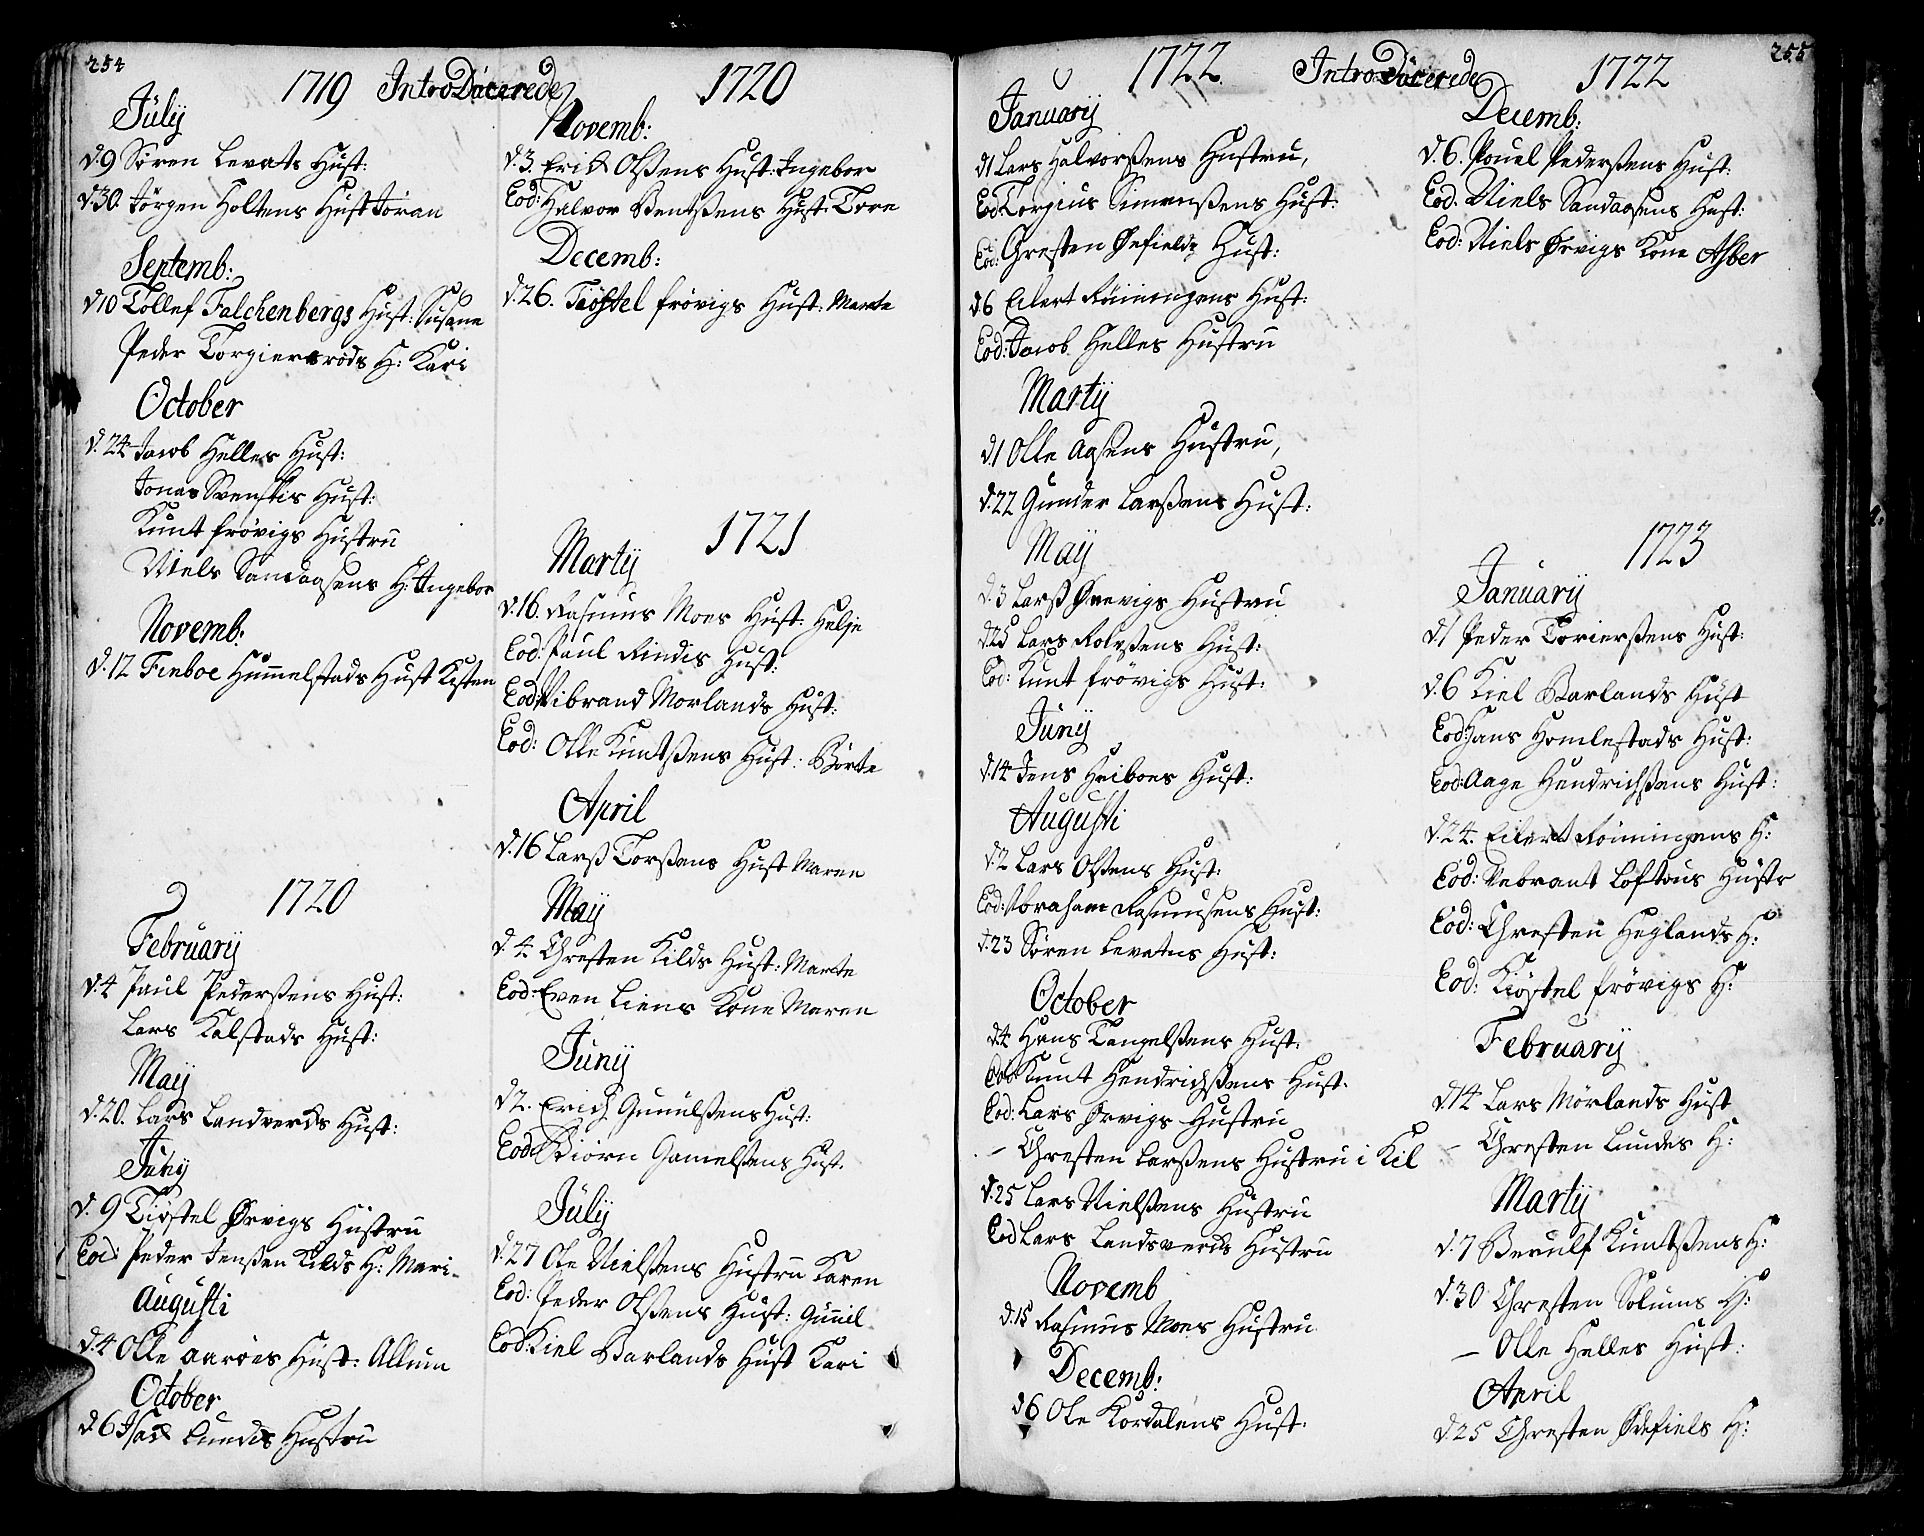 254
1719 IntroDucerede 1720
Julÿ
d.9 Sören Levats Hust:
d.30. Jörgen Holtens Hust Joran
Septemb:
d.10 Tollef Falchenbergs Hust: Susane
Peder Torgiersröds H: Kari
October
d.24 Jacob Helles Hust:
Jonas Svenskis Hust:
Knut frövigs Hustru
Niels Sandaasens H: Ingebor
Novemb:
d.12 Finboe Hummelstads Hust Kisten
1720
Februarÿ
d.4 Paul Pederssens Hust:
Lars Kalstads Hust:
Maÿ
d.20. Lars Landverks Hust:
Junÿ
d.9 Kiöstel Ørvigs Hustru
Eod: Peder Jenssen Kilds H: Mari
Augusti
d.4 Olle Aaröes Hust: Allum
October
d.6 Lundes Hustru
Novemb:
d.3. Erick Olssens Hust: Ingebor
Eod: Halvor Bentssens Hust: Tore
Decemb:
d.26. Kiöstel frövigs Hust: Marte
1721
Martÿ
d.16. Rasmus Moes Hust: Helje
Eod: Paul Rindis Hust:
Eod: Vibrand Morlands Hust:
Eod: Olle Knutssens Hust: Börte
April
d.16 Larss Torssens Hust Maren
Maÿ
d.4 Chresten Kilds Hust: Marte
Eod: Even Liens Kone Maren
Junÿ
d.2. Erich Gunulssens Hust:
Eod: Biörn Gamelssens Hust.
Julÿ
d.27 Ole Nielssens Hustru Karen
Eod: Peder Olssens Hust: Gunnil
Eod: Kiel Barlands Hust Kari
255
1722 IntroDucerede 1722
Januarÿ
d.1 Lars Halvorssens Hustru,
Eod Torgius Simenssens Hust:
Eod: Chresten Øefields Hust:
d.6 Eilert Rönningens Hust:
Eod: Jacob Helles Hustru
Martÿ
d.1 Olle Aasens Hustru,
d.22 Gunder Larssens Hust:
Maÿ
d.3 Larss Ørevigs Hustru
d.25 Lars Rolessens Hust:
Eod: Knut frövigs Hust:
Junÿ
d.14 Jens Heiboes Hust:
Augusti
d.2 Lars Olssens Hust:
Eod: Abraham Rasmusens Hust:
d.23 Sören Levatus Hust:
October
d.4 Hans Tangelssens Hust:
Eod Knut Hendrichssens Hust.
Eod: Lars Ørvigs Hustru
– Chresten Larssens Hustru i Kil
d.25 Lars Nielssens Hustru
Eod Lars Landsverks Hustru
Novemb
d.15 Rasmus Moes Hustru
Decemb:
d.6 Ole Kordalens Hust:
Decemb:
d.6. Pouel Pederssens Hust:
Eod. Niels Sandaasens Hust:
Eod: Niels Ørvigs Kone Asber
1723
Januarÿ
d.1 Peder Torierssens Hust:
d.6 Kiel Barlands Hust
Eod: Hans Homlestads Hust:
Eod: Aage Hendrichssens Hust:
d.24. Eilert Rönningens H:
Eod: Vebrant Loftous Hustr
Eod: Chresten Heglands H:
Eod: Kiöstel frövigs H:
Februarÿ
d.14 Lars Mörlands Hust
– Chresten Lundes H:
Martÿ
d.7 Berulf Knutssens H:
d.30 Chresten Solums H:
– Olle Helles Hust:
April
d.25 Chresten Ødefiels H: